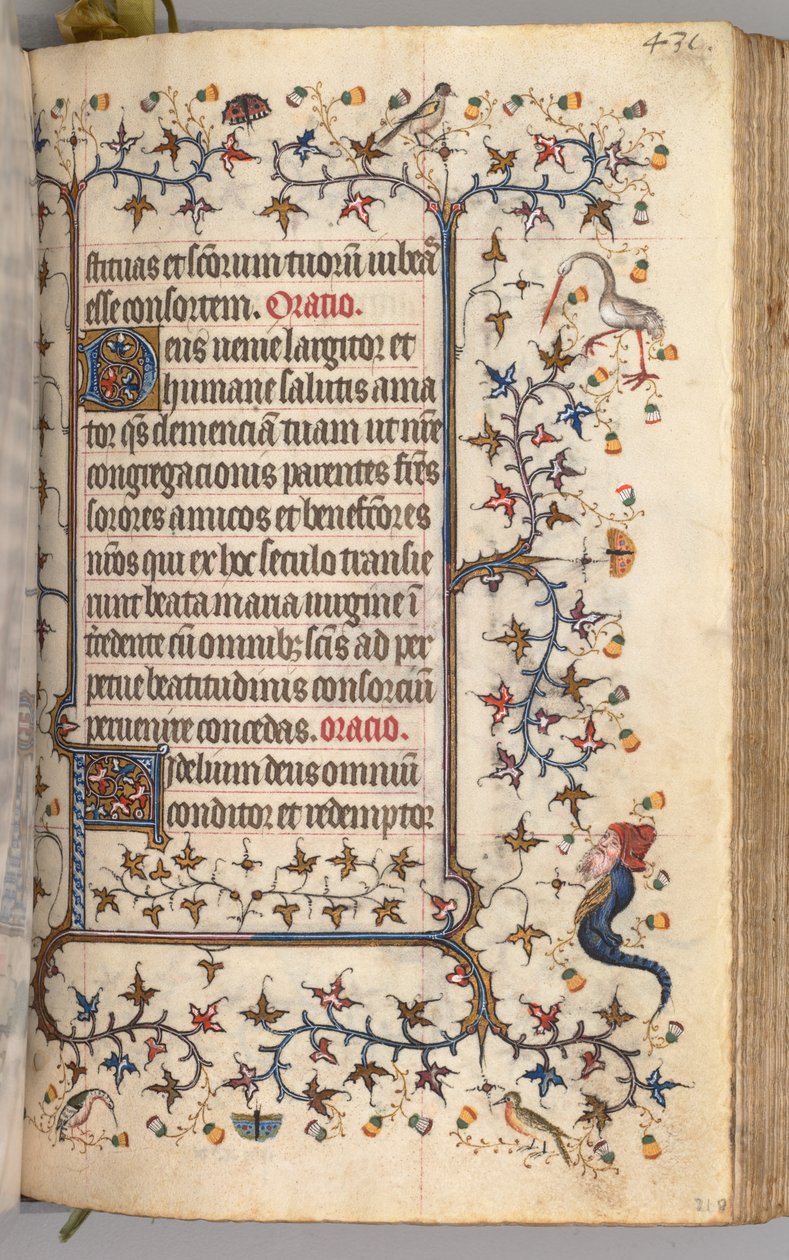 436.
stituas et scōrum tuorū iubeas
esse consortem. Oratio.
Deus uenie largitor et
humane salutis ama
tor qs̄ clemenciā tuam ut nr̄e
congregacionis parentes fr̄es
sorores amicos et benefc̄ores
nr̄os qui ex hoc seculo transie
runt beata maria uirgine ī
t̄cedente cū omnibꝫ scīs ad per
petue beatitudinis consorciū
peruenire concedas. oracio.
Fidelium deus omniū
conditor et redemptor
218